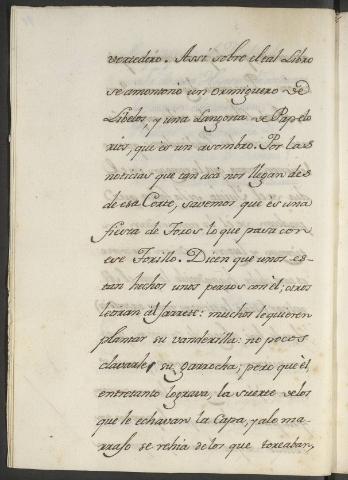 vertedero. Assi sobre el tal Libro
se amontonó un ormiguero de
Libelos, y una Langosta de Papelo
rios, que es un asombro. Por las
noticias que acá nos llegan des
de esa Corte, savemos que es una
fiesta de Toros lo que pasa con
ese Torillo. Dicen que unos es-
tan hechos unos perros con èl; otros
le tiran al Jarrete: muchos le quieren
plantar su vanderilla: no pocos
clavarle su garrocha; pero que èl
entretanto lograva, la suerte de los
que le echavan la Capa, y a lo ma-
rrajo se rehia de los que toreaban,